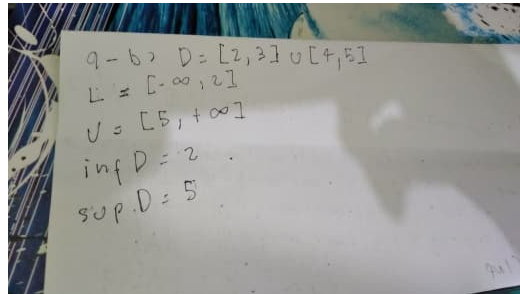 9-b> D = [2,3] ∪ [4,5]
L = [-∞, 2]
U = [5, +∞]
inf D = 2
sup.D = 5